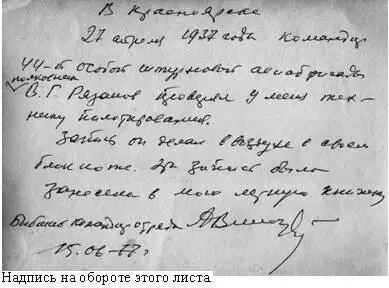 В Красноярске
27 апреля 1937 года командир
44-й особой штурмовой авиабригады
полковник
В. Г. Рязанов проверял у меня тех-
нику пилотирования.
Запись он делал в воздухе в своем
блокноте. Эта запись была
занесена в мою летную книжку
Бывший командир отряда
15.06-77 г
Надпись на обороте этого листа